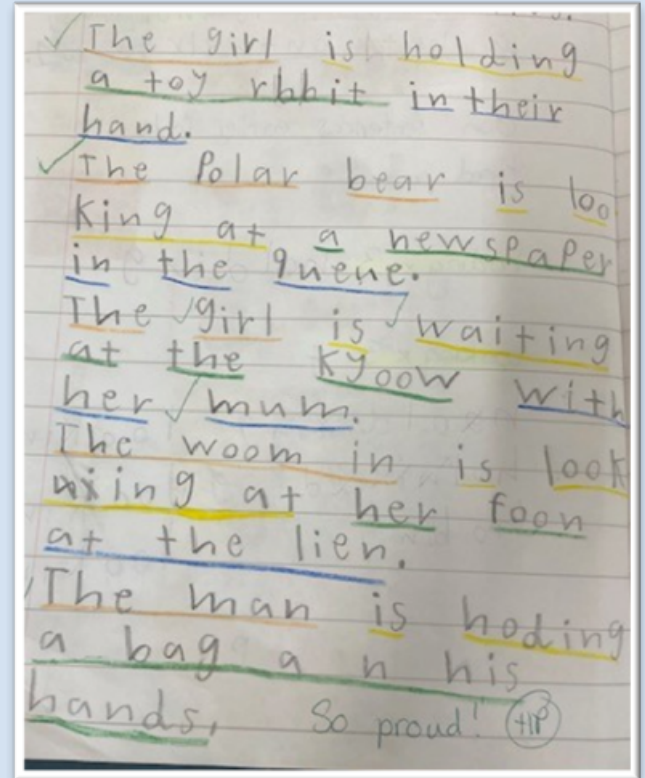 The girl is holding
a toy rbbit in their
hand.
The Polar bear is loo
king at a newspaper
in the quene.
The girl is waiting
at the kyoow with
her mum.
The woom in is look
iing at her foon
at the lien.
The man is hoding
a bag a n his
hands,
So proud! +1P